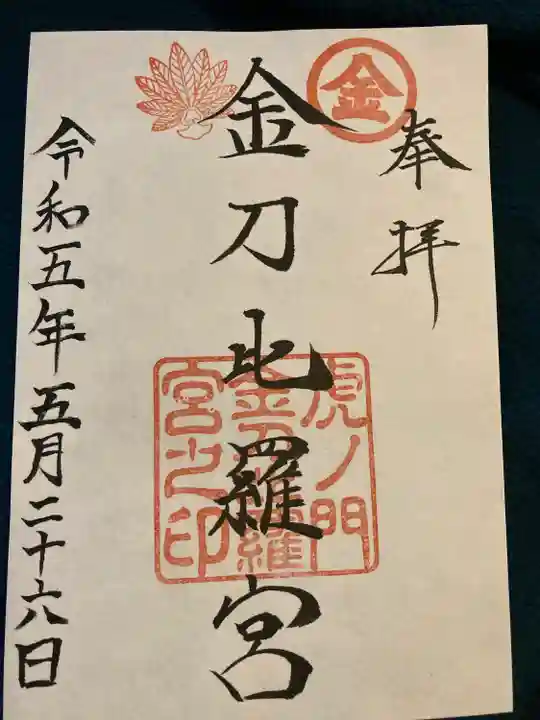 奉拝
金
金刀比羅宮
虎ノ門
金刀比羅
宮之印
令和五年五月二十六日